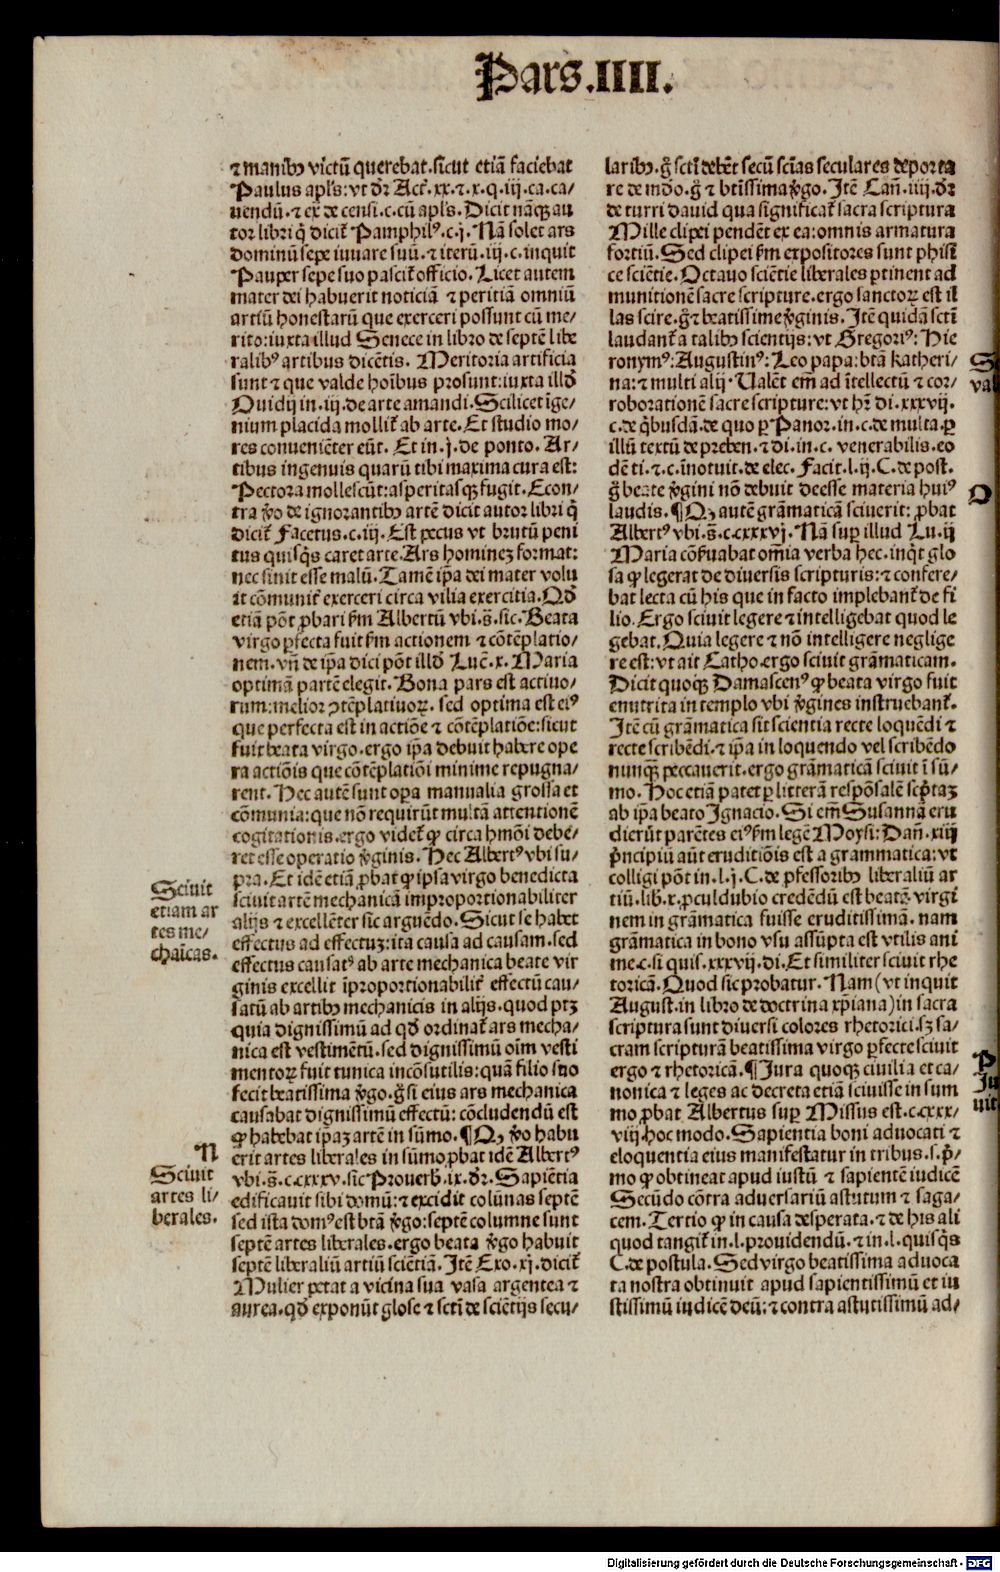 Pars.IIII.
⁊ manibꝰ victū querebat.sicut etiā faciebat
Paulus apl's:vt dr̄ Act̄. xx.⁊.x.q.iij.ca.ca/
uendū.⁊ ex̄ de censi.c.cū apl's. Dicit nāqꝫ au
tor libri q̄ dicit̄ Pamphilꝰ.c.j. Nā solet ars
dominū sepe iuuare suū.⁊ iterū.iij.c.inquit
Pauper sepe suo pascit̄ officio. Licet autem
mater dei habuerit noticiā ⁊ peritiā omniū
artiū honestarū que exerceri possunt cū me/
rito:iuxta illud Senece in libro de septē libe
ralibꝰ artibus dicētis. Meritoria artificia
sunt ⁊ que valde hoībus prosunt:iuxta illd̄
Ouidij in.iij.de arte amandi. Scilicet īge/
nium placida mollit̄ ab arte. Et studio mo/
res conueniēter eūt. Et in.j.de ponto. Ar/
tibus ingenuis quarū tibi maxima cura est:
Pectora mollescūt:asperitasqꝫ fugit. Econ/
tra ꝟo de ignorantibꝰ artē dicit autor libri q̄
dicit̄ Facetus.c.iij. Est pecus vt brutū peni
tus quisq̄s caret arte. Ars hominez format:
nec sinit esse malū. Tamē ip̄a dei mater volu
it cōmunit̄ exerceri circa vilia exercitia. Qd̄
etiā pōt ꝓbari ẜm Albertū vbi.s̄.sic. Beata
virgo ꝑfecta fuit ẜm actionem ⁊ cōtēplatio/
nem.vn̄ de ip̄a dici pōt illd̄ Luc̄.x. Maria
optimā partē elegit. Bona pars est actiuo/
rum:melior ꝯtēplatiuoꝝ. sed optima est eiꝰ
que perfecta est in actiōe ⁊ cōtēplatiōe:sicut
fuit beata virgo.ergo ip̄a debuit habere ope
ra actiōis que cōtēplatiōi minime repugna/
rent. Hec autē sunt oꝑa manualia grossa et
cōmunia:que nō requirūt multā attentionē
cogitationis.ergo videt̄ ꝙ circa hmōi debe/
ret esse operatio ꝟginis. Hec Albertꝰ vbi su/
pra. Et idē etiā ꝓbat ꝙ ipsa virgo benedicta
sciuit artē mechanicā improportionabiliter
alijs ⁊ excellēter sic arguēdo. Sicut se habet
effectus ad effectuꝫ:ita causa ad causam.sed
effectus causatꝰ ab arte mechanica beate vir
ginis excellit īproportionabilit̄ effectū cau/
satū ab artibꝰ mechanicis in alijs.quod ptꝫ
quia dignissimū ad qd̄ ordinat̄ ars mecha/
nica est vestimētū.sed dignissimū oīm vesti
mentoꝝ fuit tunica incōsutilis:quā filio suo
fecit beatissima ꝟgo.g̊ si eius ars mechanica
causabat dignissimū effectū: cōcludendū est
ꝙ habebat ip̄aꝫ artē in sūmo. ¶ Qꝙ ꝟo habu
erit artes liberales in sūmo ꝓbat idē Albertꝰ
vbi.s̄.c.cxxxv.sic Prouerb̄.ix.dr̄. Sapiētia
edificauit sibi domū:⁊ excidit colūnas septē
sed ista domꝰ est btā ꝟgo:septē columne sunt
septē artes liberales.ergo beata ꝟgo habuit
septē liberaliū artiū sciētiā. Itē Exo.xj.dicit̄
Mulier petat a vicina sua vasa argentea ⁊
aurea.qd̄ exponūt glose ⁊ sctī de sciētijs secu/
Sciuit
etiam ar
tes me/
chaīcas.
N
Sciuit
artes li/
berales.
laribꝰ.g̊ sctī debēt secū scīas seculares deporta
re de mdo.g̊ ⁊ btissima ꝟgo. Itē Can̄.iiij.dr̄
de turri dauid qua significat̄ sacra scriptura
Mille clipei pendēt ex ea:omnis armatura
fortiū. Sed clipei ẜm expositores sunt phisi
ce sciētie. Octauo sciētie liberales ꝑtinent ad
munitionē sacre scripture.ergo sanctoꝝ est il
las scire.g̊ ⁊ beatissime ꝟginis. Itē quidā sctī
laudant̄ a talibꝰ scientijs:vt Gregoriꝰ: Hie
ronymꝰ:Augustinꝰ:Leo papa:btā katheri/
na:⁊ multi alij. Ualēt em̄ ad ītellectū ⁊ cor/
roborationē sacre scripture:vt hr̄ di.xxxvij.
c.de q̄busdā.de quo ꝑ Panor.in.c.de multa.ꝑ
illū textū de preben.⁊ di.in.c. venerabilis.eo
dē ti.⁊.c.īnotuit.de elec. Facit.l.ij.C.de post.
g̊ beate ꝟgini nō debuit deesse materia huiꝰ
laudis. ¶ Qꝙ autē grāmaticā sciuerit: ꝓbat
Albertꝰ vbi.s̄.c.cxxxvj. Nā suꝑ illud Lu.ij
Maria cōẜuabat om̄ia verba hec.inq̄t glo
sa ꝙ legerat de diuersis scripturis:⁊ confere/
bat lecta cū his que in facto implebant̄ de fi
lio. Ergo sciuit legere ⁊ intelligebat quod le
gebat. Quia legere ⁊ nō intelligere neglige
re est:vt ait Catho.ergo sciuit grāmaticam.
Dicit quoqꝫ Damascenꝰ ꝙ beata virgo fuit
enutrita in templo vbi ꝟgines instruebant̄.
Itē cū grāmatica sit scientia recte loquēdi ⁊
recte scribēdi.⁊ ip̄a in loquendo vel scribēdo
nunqꝫ peccauerit.ergo grāmaticā sciuit ī sū/
mo. Hoc etiā patet ꝑ litterā respōsalē scp̄taꝫ
ab ip̄a beato Ignacio. Si em̄ Susannā eru
dierūt parētes eiꝰ ẜm legē Moysi: Dan̄.xiij
p̄ncipiū aūt eruditiōis est a grammatica:vt
colligi pōt in.l.j.C.de ꝓfessoribꝰ liberaliū ar
tiū.lib.x.ꝓculdubio credēdū est beatā virgi
nem in grāmatica fuisse eruditissimā. nam
grāmatica in bono vsu assūpta est vtilis ani
me.c.si quis.xxxvij.di. Et similiter sciuit rhe
toricā. Quod sic probatur. Nam (vt inquit
August.in libro de doctrina xp̄iana) in sacra
scriptura sunt diuersi colores rhetorici.sꝫ sa/
cram scripturā beatissima virgo ꝑfecte sciuit
ergo ⁊ rhetoricā. ¶ Jura quoqꝫ ciuilia et ca/
nonica ⁊ leges ac decreta etiā sciuisse in sum
mo ꝓbat Albertus suꝑ Missus est.c.cxxx/
viij.hoc modo. Sapientia boni aduocati ⁊
eloquentia eius manifestatur in tribus.s.p̄/
mo ꝙ obtineat apud iustū ⁊ sapientē iudicē
Secūdo cōtra aduersariū astutum ⁊ saga/
cem. Tertio ꝙ in causa desperata.⁊ de his ali
quod tangit̄ in.l.prouidendū.⁊ in.l.quisq̄s
C.de postula. Sed virgo beatissima aduoca
ta nostra obtinuit apud sapientissimū et iu
stissimū iudicē deū:⁊ contra astutissimū ad/
O
Digitalisierung gefördert durch die Deutsche Forschungsgemeinschaft - DFG